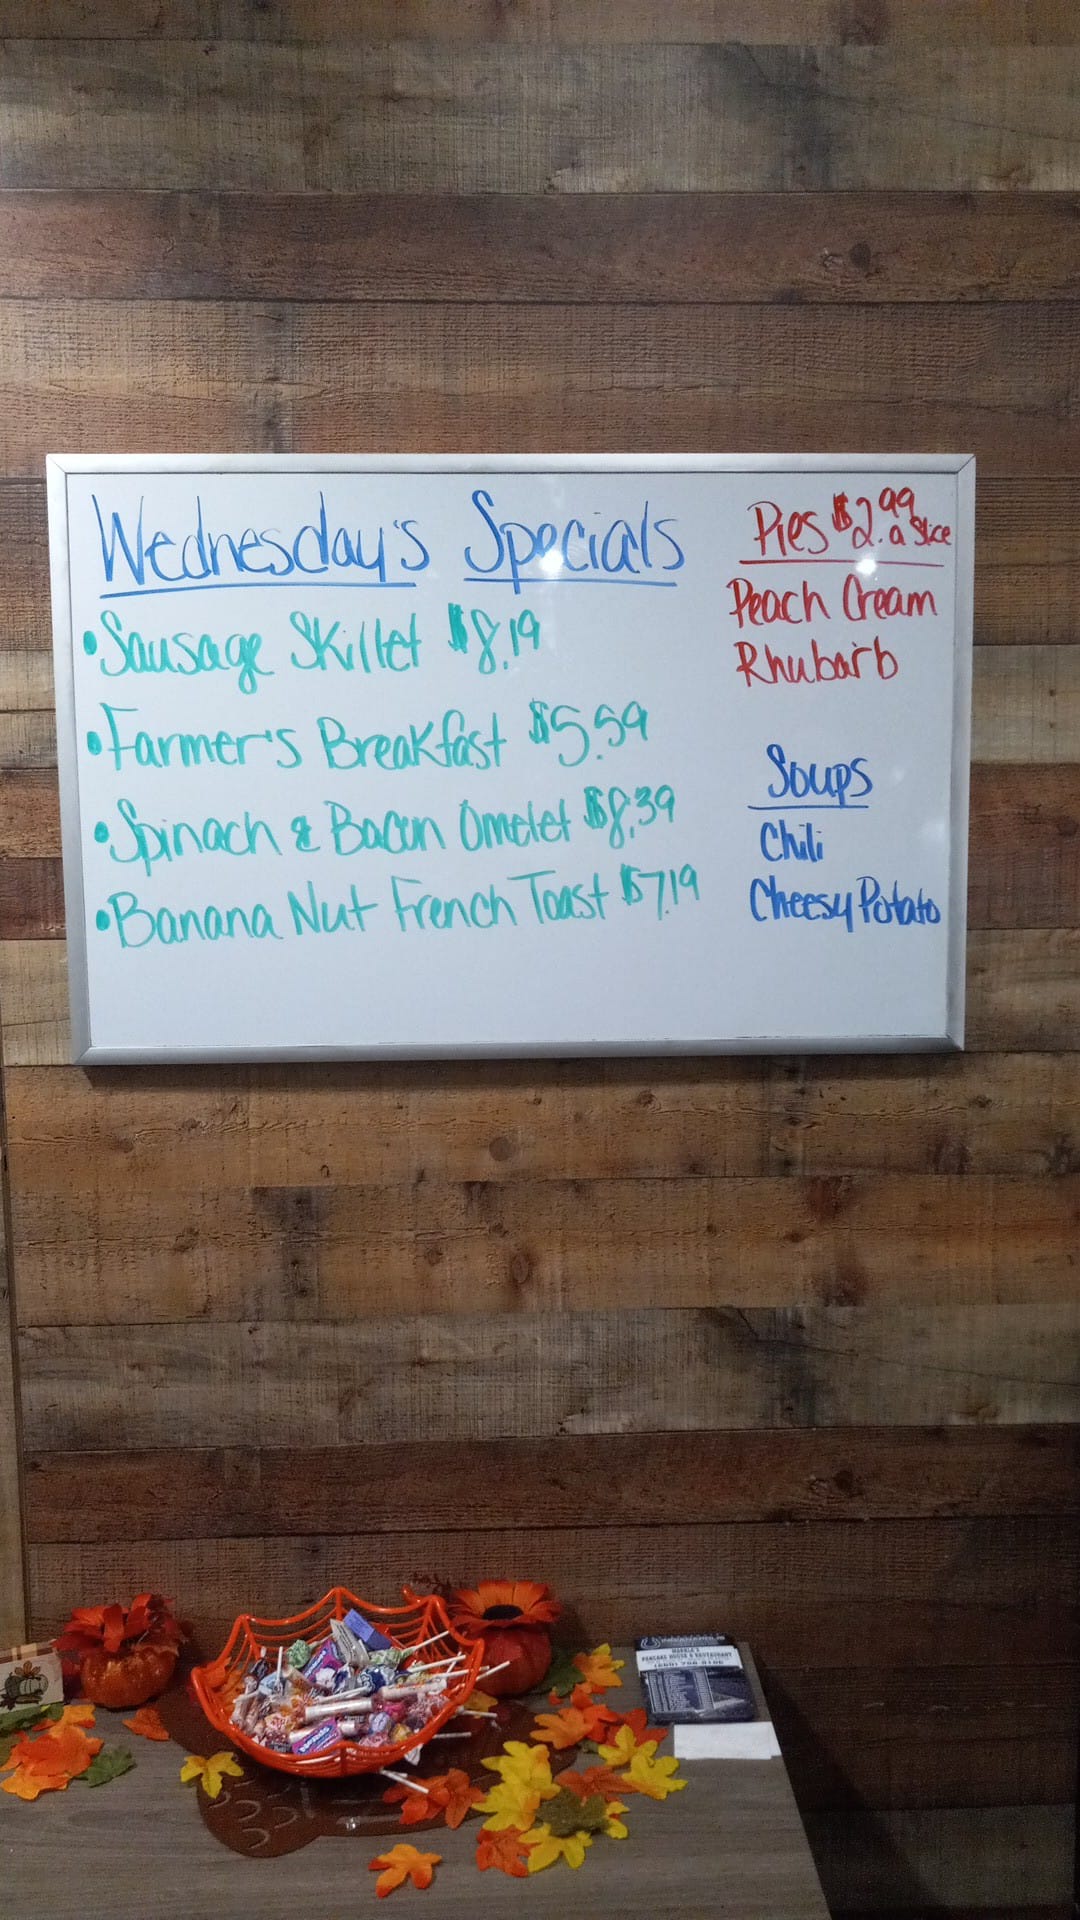 Wednesday's Specials
• Sausage Skillet $8.19
• Farmer's Breakfast $5.59
• Spinach & Bacon Omelet $8.39
• Banana Nut French Toast $7.19
Pies $2.99
a Slice
Peach Cream
Rhubarb
Soups
Chili
Cheesy Potato
PANCAKE HOUSE & RESTAURANT